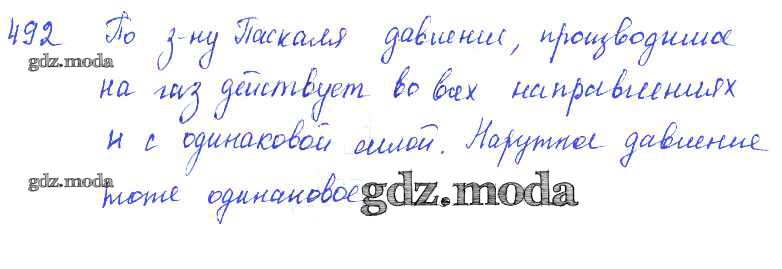 492 По з-ну Паскаля давление, производимое
gdz.moda
на газ действует во всех направлениях
и с одинаковой силой. Наружное давление
gdz.moda
тоже одинаковое.
gdz.moda